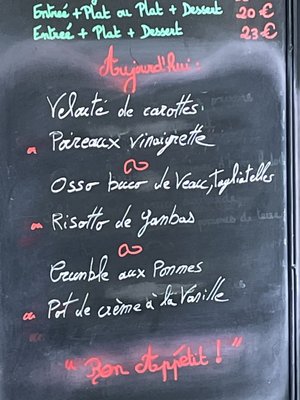 Entreé + Plat ou Plat + Dessert 20€
Entreé + Plat + Dessert 23€
Aujourd'hui:
Velouté de carottes.
ou Poireaux vinaigrette
Osso buco de Veau, tagliatelles
ou Risotto de Gambas
Crumble aux Pommes
ou Pot de crème à la Vanille
"Bon Appétit!"